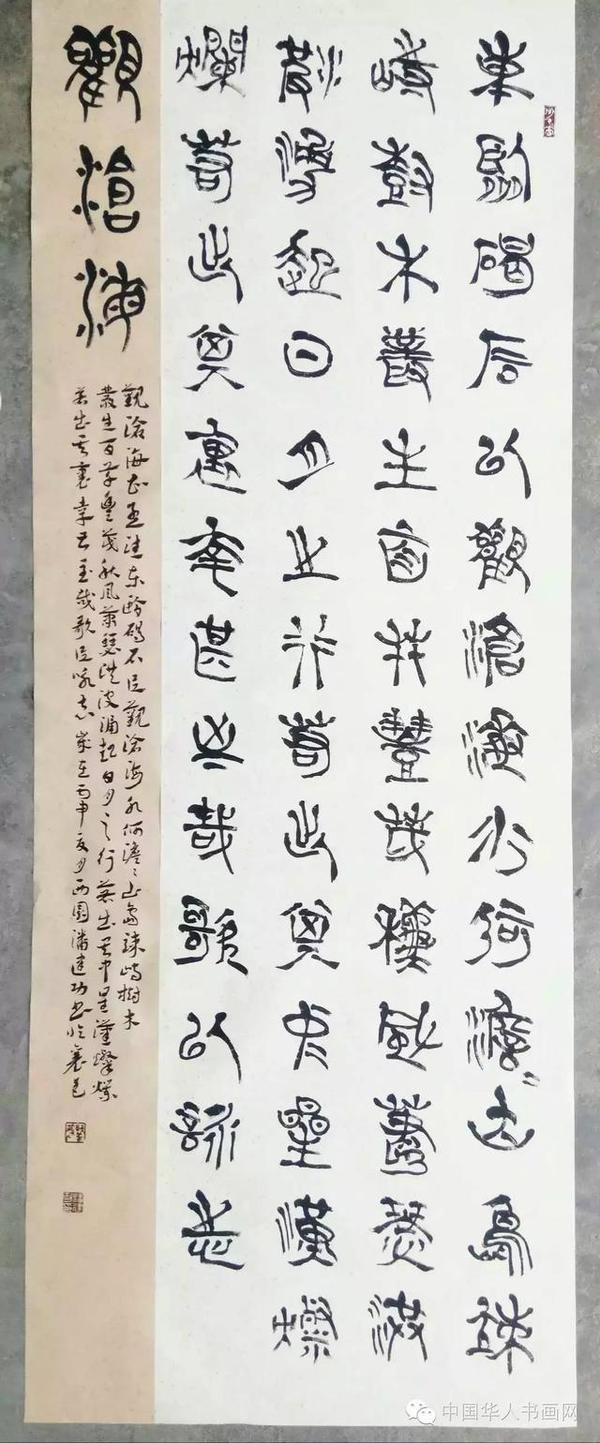 東臨碣石以觀滄海水何澹〻山島竦
峙樹木叢生百草豐茂秋風蕭瑟洪
波涌起日月之行若出其中星漢燦
爛若出其裏幸甚至哉歌以詠志
觀滄海
觀滄海东臨碣石以觀滄海水何澹〻山島竦峙樹木
叢生百草豐茂秋風蕭瑟洪波涌起日月之行若出其中星漢燦爛
若出其裏幸甚至哉歌以咏志歲在丙申夏月西園潘建功书於襄邑
中国华人书画网